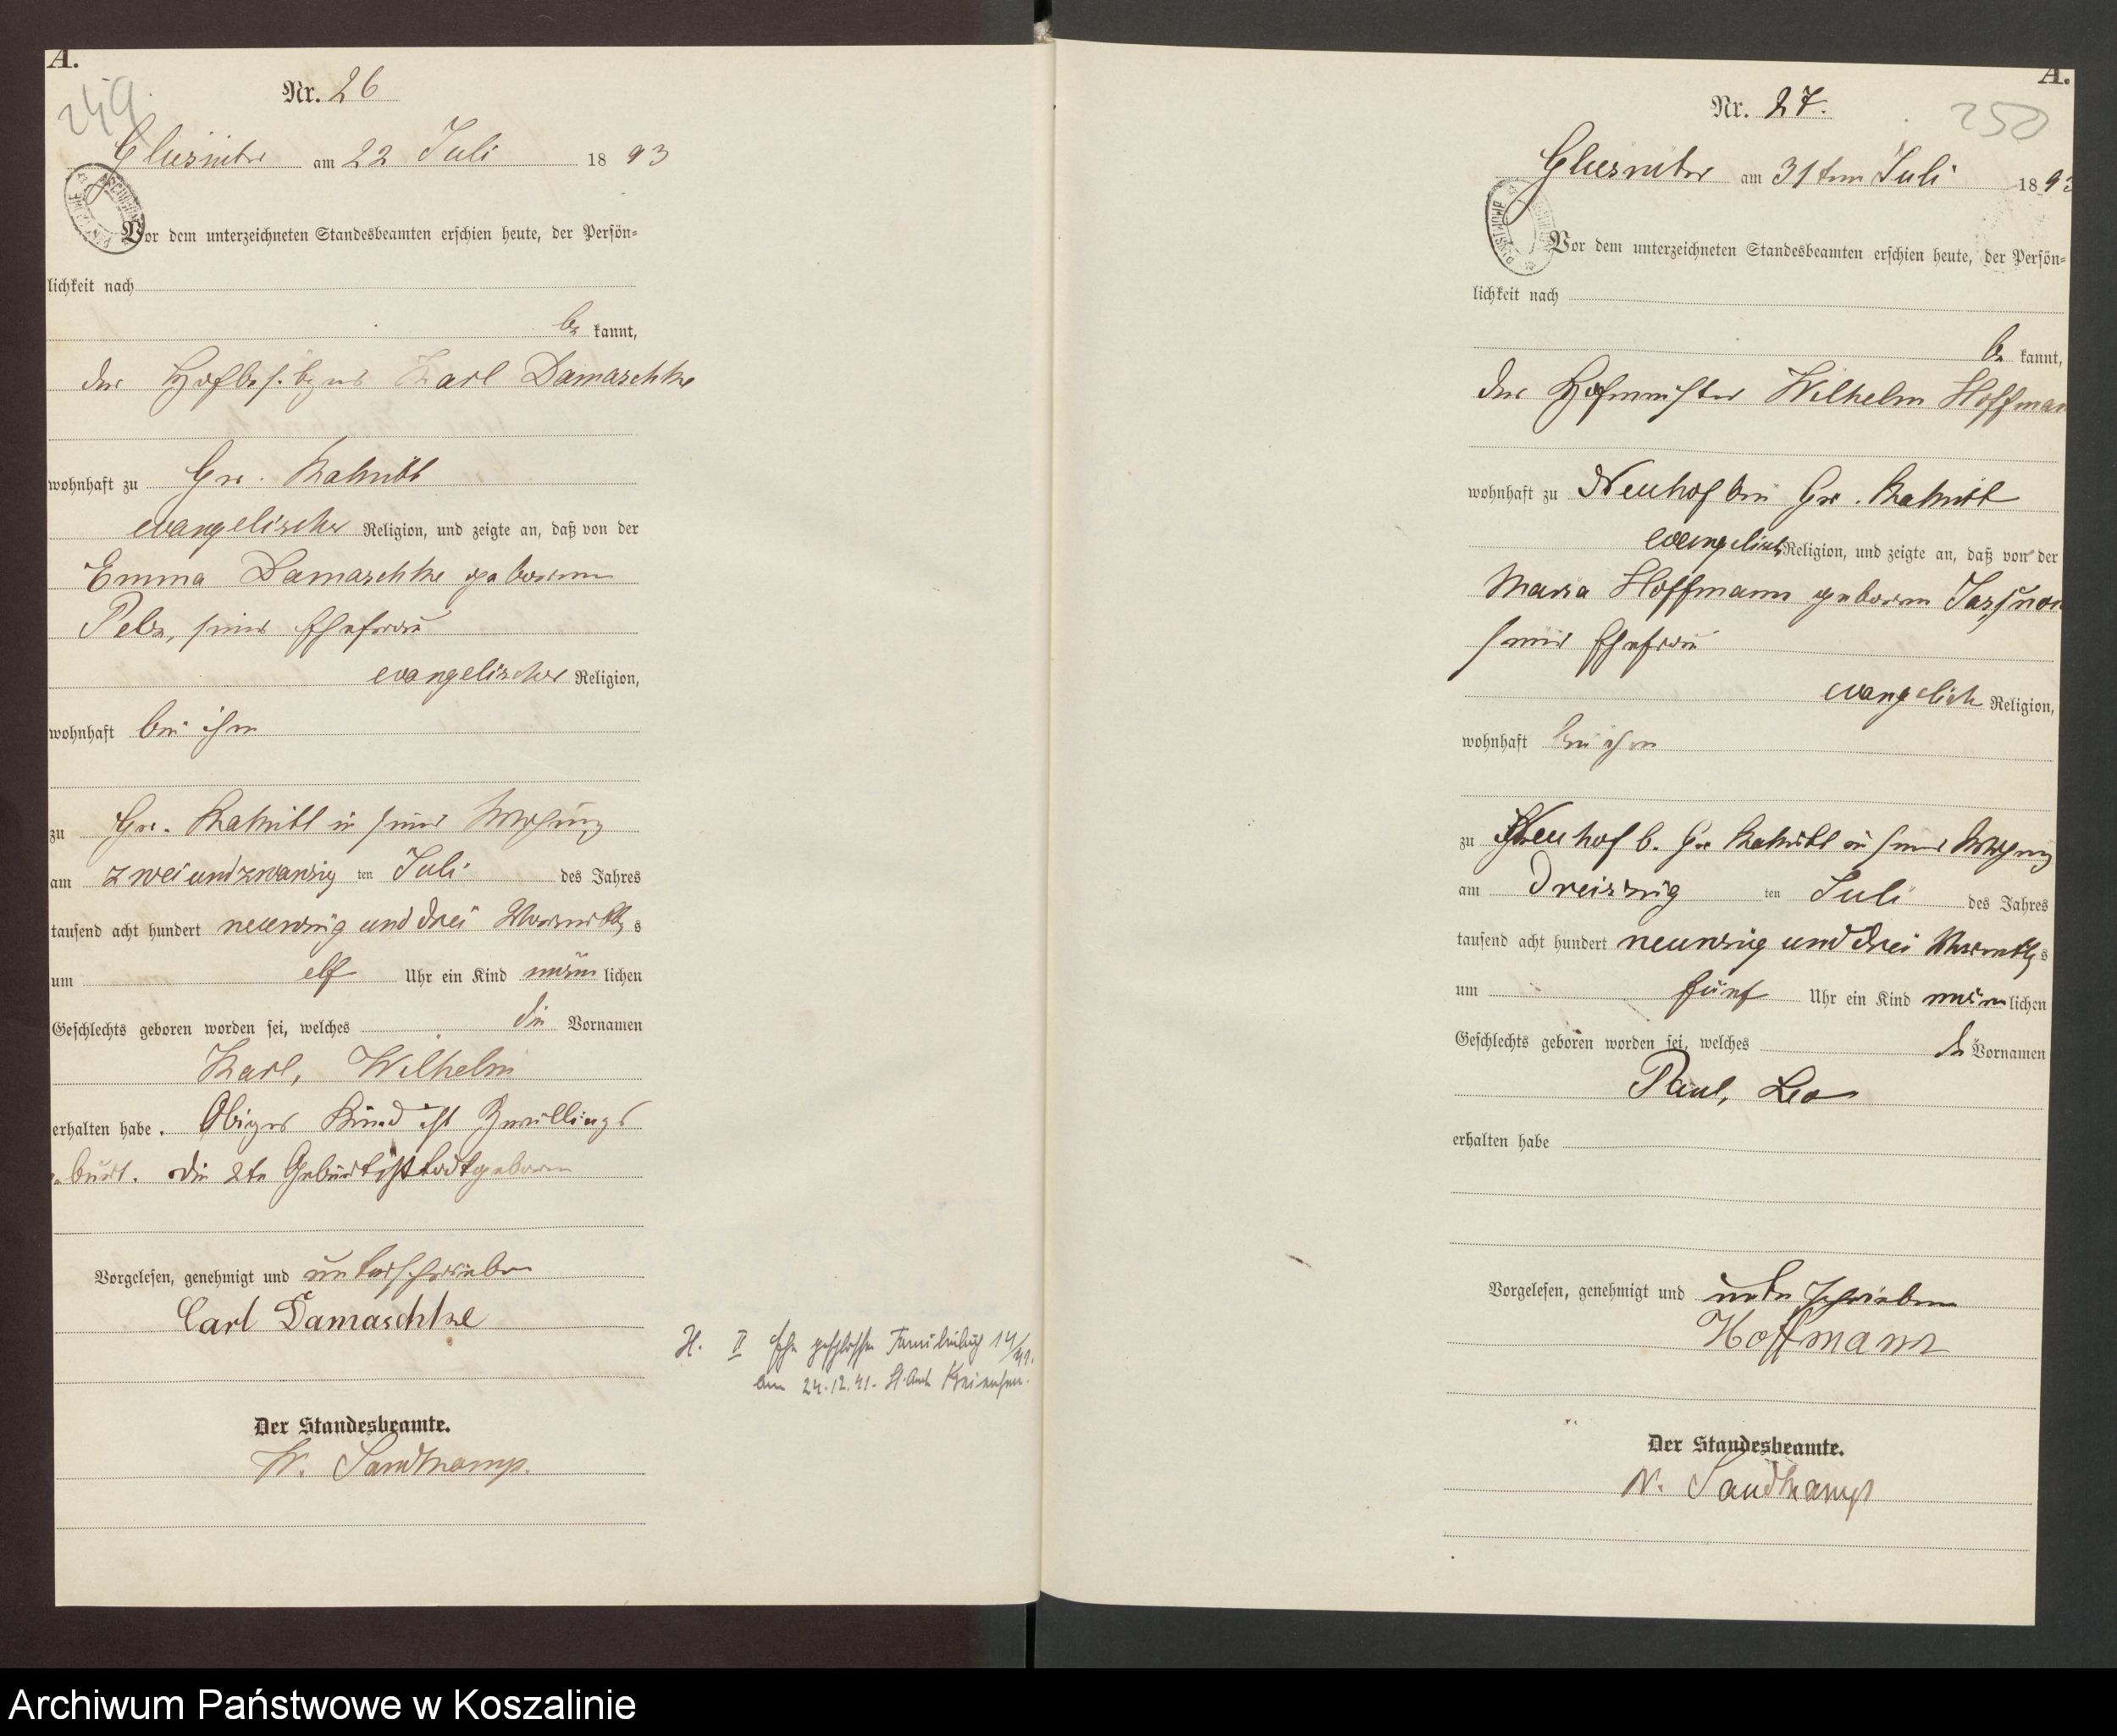 A.
249.
Nr. 26
am 22 Juli 1893
Vor dem unterzeichneten Standesbeamten erschien heute, der Persön=
lichkeit nach
be kannt,
der Hofbesitzer Karl Damaschke
wohnhaft zu Gr. Rakitt
evangelischer Religion, und zeigte an, daß von der
Emma Damaschke geborene
seiner Ehefrau
evangelischer Religion,
wohnhaft bei ihm
zu Gr. Rakitt in seiner Wohnung
am zweiundzwanzig ten Juli des Jahres
tausend acht hundert neunzig und drei Vormittags
um elf Uhr ein Kind männ lichen
Geschlechts geboren worden sei, welches die Vornamen
Karl, Wilhelm
erhalten habe. Obiges Kind ist Zwillings
geburt. die 2te Geburt ist todtgeboren
Vorgelesen, genehmigt und unterschrieben
Carl Damaschke
H. II Ehe geschlossen 14/41.
am 24.12.41. St.Amt Kreiensen.
Der Standesbeamte.
W. Sandkamp.
A.
250
Nr. 27.
am 31ten Juli 1893
Vor dem unterzeichneten Standesbeamten erschien heute, der Persön=
lichkeit nach
be kannt,
der Hofmeister Wilhelm Hoffmann
wohnhaft zu Neuhof bei Gr. Rakitt
evangelisch Religion, und zeigte an, daß von der
Maria Hoffmann geboren
seiner Ehefrau
evangelisch Religion,
wohnhaft bei ihm
zu Neuhof b. Gr Rakitt in seiner Wohnung
am dreiszig ten Juli des Jahres
tausend acht hundert neunzig und drei Vormittags
um fünf Uhr ein Kind männ lichen
Geschlechts geboren worden sei, welches die Vornamen
Paul, Leo
erhalten habe
Vorgelesen, genehmigt und unterschrieben
Hoffmann
Der Standesbeamte.
W. Sandkamp
Archiwum Państwowe w Koszalinie